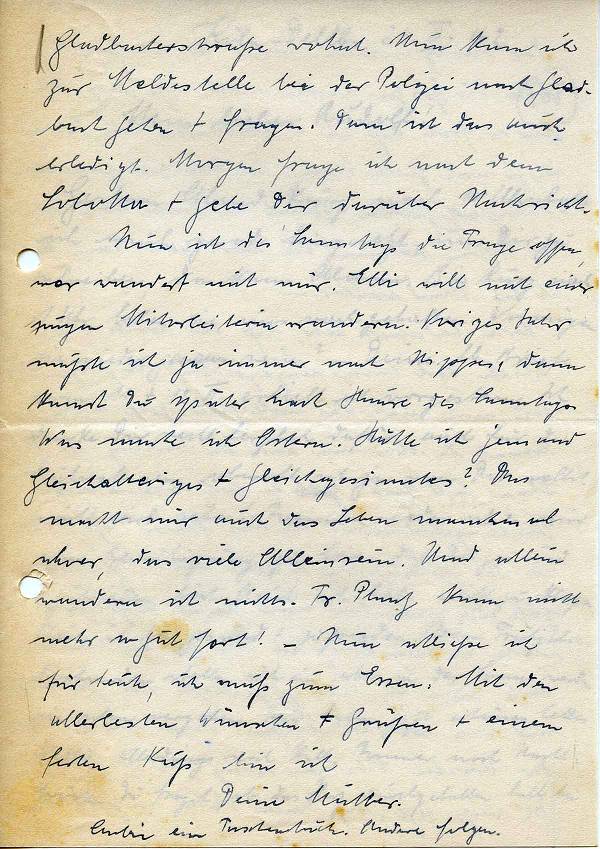 Gladbacherstraße wohnt. Nun kann ich
zur Meldestelle bei der Polizei nach Glad-
bach gehen + fragen. Dann ist das auch
erledigt. Morgen frage ich nach dem
+ gebe Dir darüber Nachricht.
Nun ist des Sonntags die Frage offen,
wer wandert mit mir. Elli will mit einer
jungen Mitarbeiterin wandern. Voriges Jahr
mußte ich ja immer nach Nippes, dann
kamst Du später nach Hause des Sonntags
Was mache ich Ostern. Hätte ich jemand
Gleichaltriges + Gleichgesinntes? Das
macht mir auch das Leben manchmal
schwer, das viele Alleinsein. Und allein
wandern ist nichts. Fr. kann nicht
mehr so gut fort! – Nun schließe ich
für heute, ich muß zum Essen. Mit den
allerbesten Wünschen + Grüßen + einem
festen Kuß bin ich
Deine Mutter.
ein Taschentuch. Andere folgen.